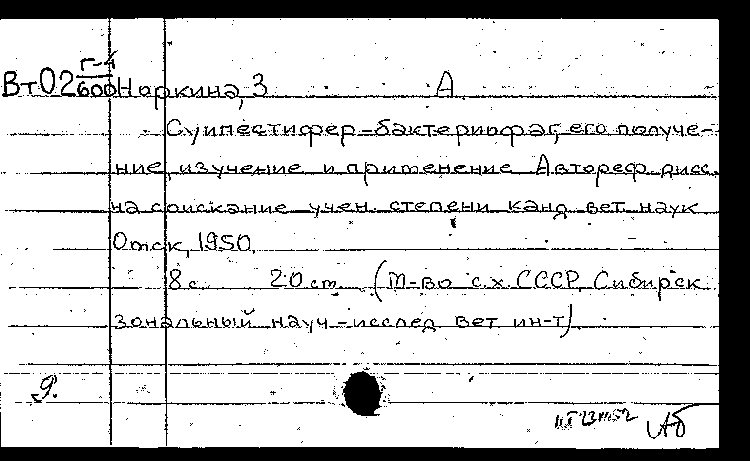 Вт02 Г-4/600 Наркина, З А.
Суипестифер-бактериофаг, его получе-
ние, изучение и применение Автореф. дисс.
на соискание учен. степени канд вет наук
Омск, 1950.
8 с. 20 см. (М-во с.х. СССР. Сибирск
зональный науч.-исслед вет ин-т)
9.